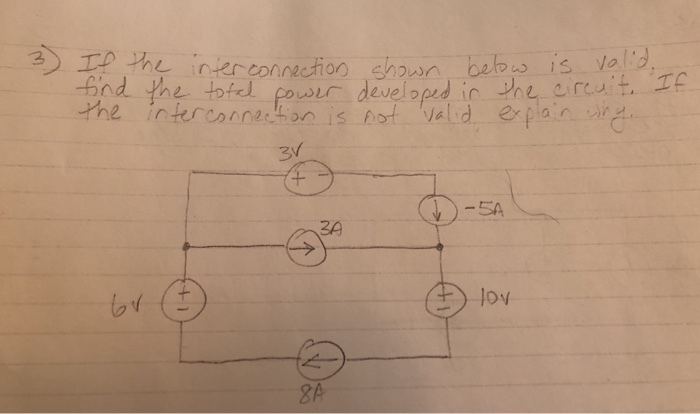 3) If the interconnection shown below is valid,
find the total power developed in the circuit. If
the interconnection is not valid explain why.
3V
+ -
-5A
3A
6V
+
-
+
-
10V
8A